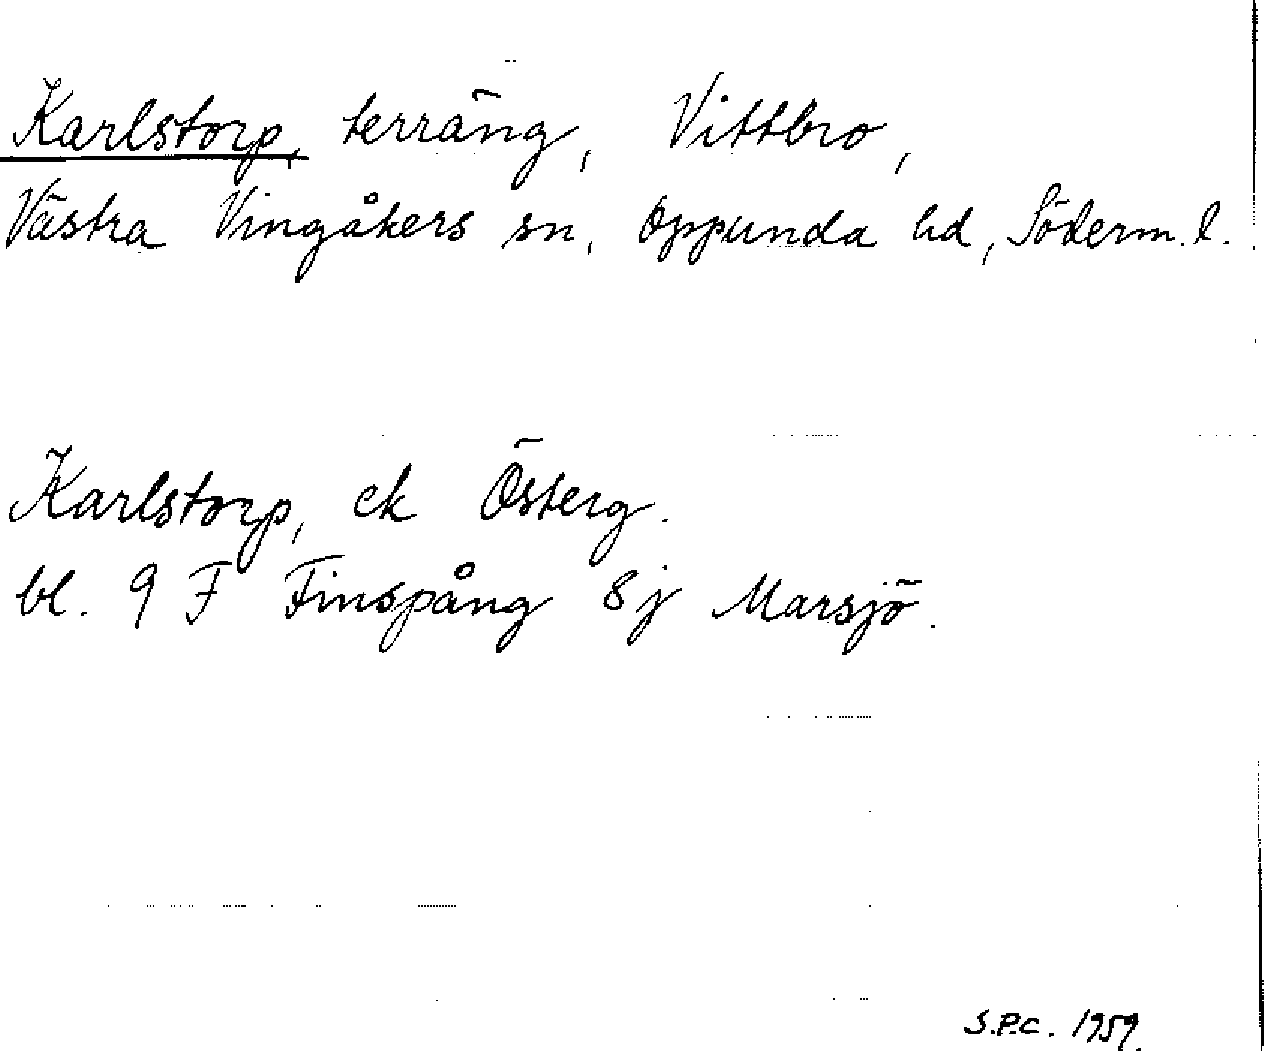 Karlstorp, terräng, Vittbro,
Västra Vingåkers sn, Oppunda hd, Söderm. l.
Karlstorp, ek Österg.
bl. 9 F Finspång 8 j Marsjö.
S.P.C. 1959.